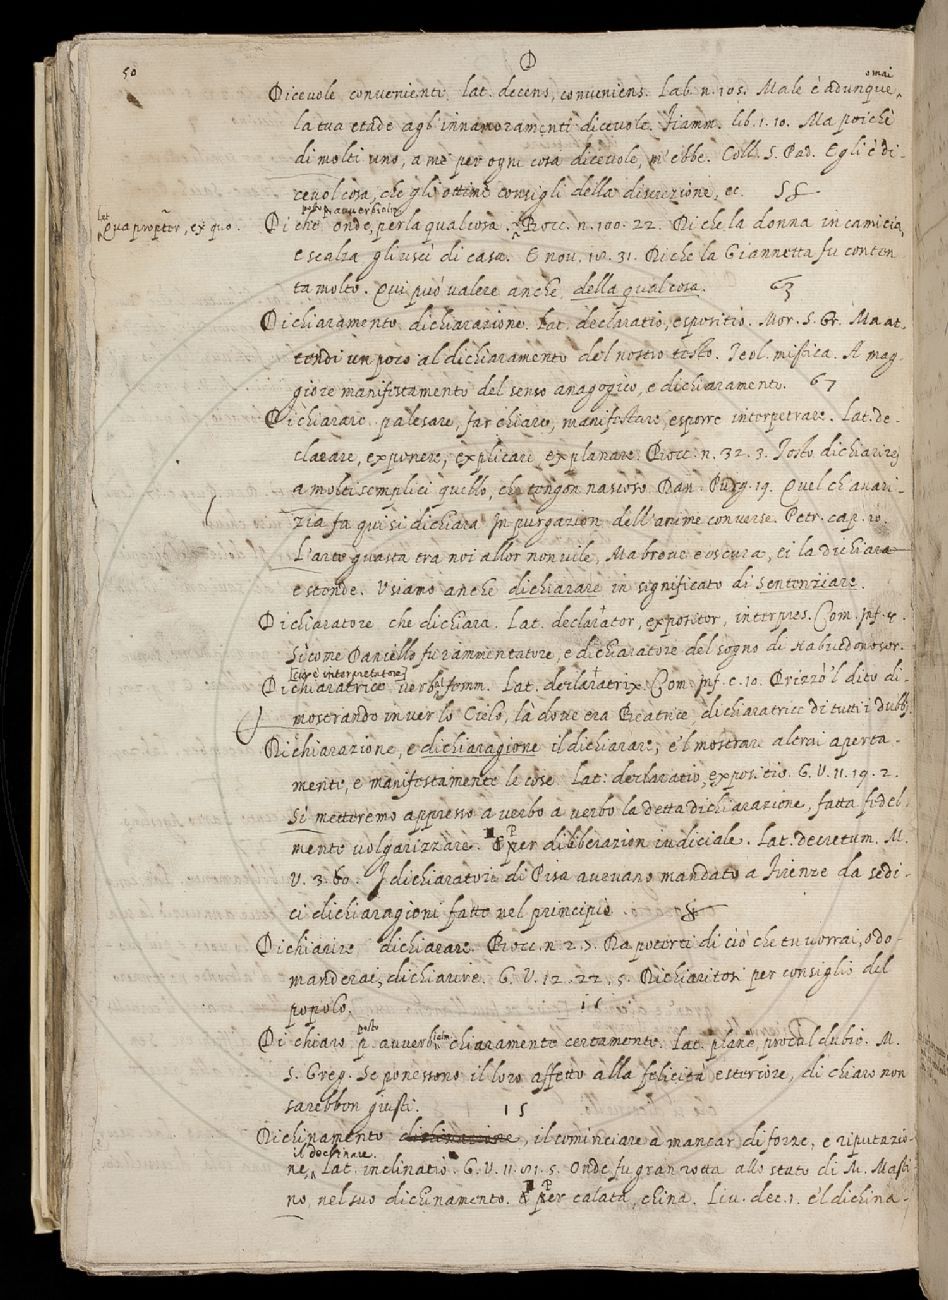 50
D
omai
Dicevole convenienti. lat. decens, conveniens. Lab. n. 105. Male è adunque
la tua etade agl'innamoramenti dicevole. Fiamm. lib. 1. 10. Ma poichè
di molti uno, a me per ogni cosa dicevole, m'ebbe. Coll. S. Pad. Egli è di-
cevol cosa, che gli ottimi consigli della discrezione, ec.
lat. Qua propter, ex quo.
posto avverbialm.
Di che onde, per la qualcosa. Bocc. n. 100. 22. Di che la donna in camicia,
e scalza gli uscì di casa. E nov. 18. 31. Di che la Giannetta fu conten
ta molto. Qui può valere anche della qualcosa. 63
Dichiaramento. dichiarazione. Lat. declaratio, espositio. Mor. S. Gr. Ma at-
tendi un poco al dichiaramento del nostro testo. Teol. mistica. A mag-
giore manifestamento del senso anagogico, e dichiaramento. 67
Dichiarare. palesare, far chiaro, manifestare, esporre interpetrare. Lat. de-
clarare, exponere, explicare, explanare. Bocc. n. 32. 3. Testo dichiarirej
a molti semplici quello, che tengon nascoso. Dan. Purg. 19. Quel ch'avari-
zia fa qui si dichiara In purgazion dell'anime converse. Petr. cap. 10.
L'arte guasta tra noi allor non vile, Ma breve e oscura, ei la dichiara
e stende. Usiamo anche dichiarare in significato di sentenziare.
Dichiaratore che dichiara. Lat. declarator, expositor, interpres. Com. Inf. 5.
Sì come Daniello fu rammentatore, e dichiaratore del sogno di Nabucdonosor.
[cioè interpretatore]
Dichiaratrice verbal femm. Lat. declaratrix. Com. Inf. c. 10. Drizzò 'l dito di-
mostrando in ver lo Cielo, là dove era Beatrice, dichiaratrice di tutti i dubbj
Dichiarazione, e dichiaragione il dichiarare, e 'l mostrare altrui aperta-
mente, e manifestamente le cose. Lat. declaratio, expositio. G. V. 11. 19. 2.
Sì metteremo appresso a verbo a verbo la detta dichiarazione, fatta fidel
mente volgarizzare. P per diliberazion iudiciale. Lat. decretum. M.
V. 3. 60. I dichiaratori di Pisa avevano mandato a Firenze da sedi-
ci dichiaragioni fatte nel principio.
Dichiarire dichiarare. Bocc. n. 2. 7. Da poterti di ciò che tu vorrai, o do-
manderai, dichiarire. G. V. 12. 22. 5. Dichiaritosi per consiglio del
popolo. 16
posto
Di chiaro p. avverbialm. chiaramente certamente. Lat. plane, procul dubio. M.
S. Greg. Se ponessono il loro affetto alla felicità esteriore, di chiaro non
sarebbon giusti. 15
Dichinamento dichinazione, il cominciare a mancar di forze, e riputazio-
il declinare.
ne, Lat. inclinatio. G. V. 11. 81. 5. Onde fu gran rotta allo stato di M. Masti
no, nel suo dichinamento. P per calata, china. Liv. dec. 1. e 'l dichina-